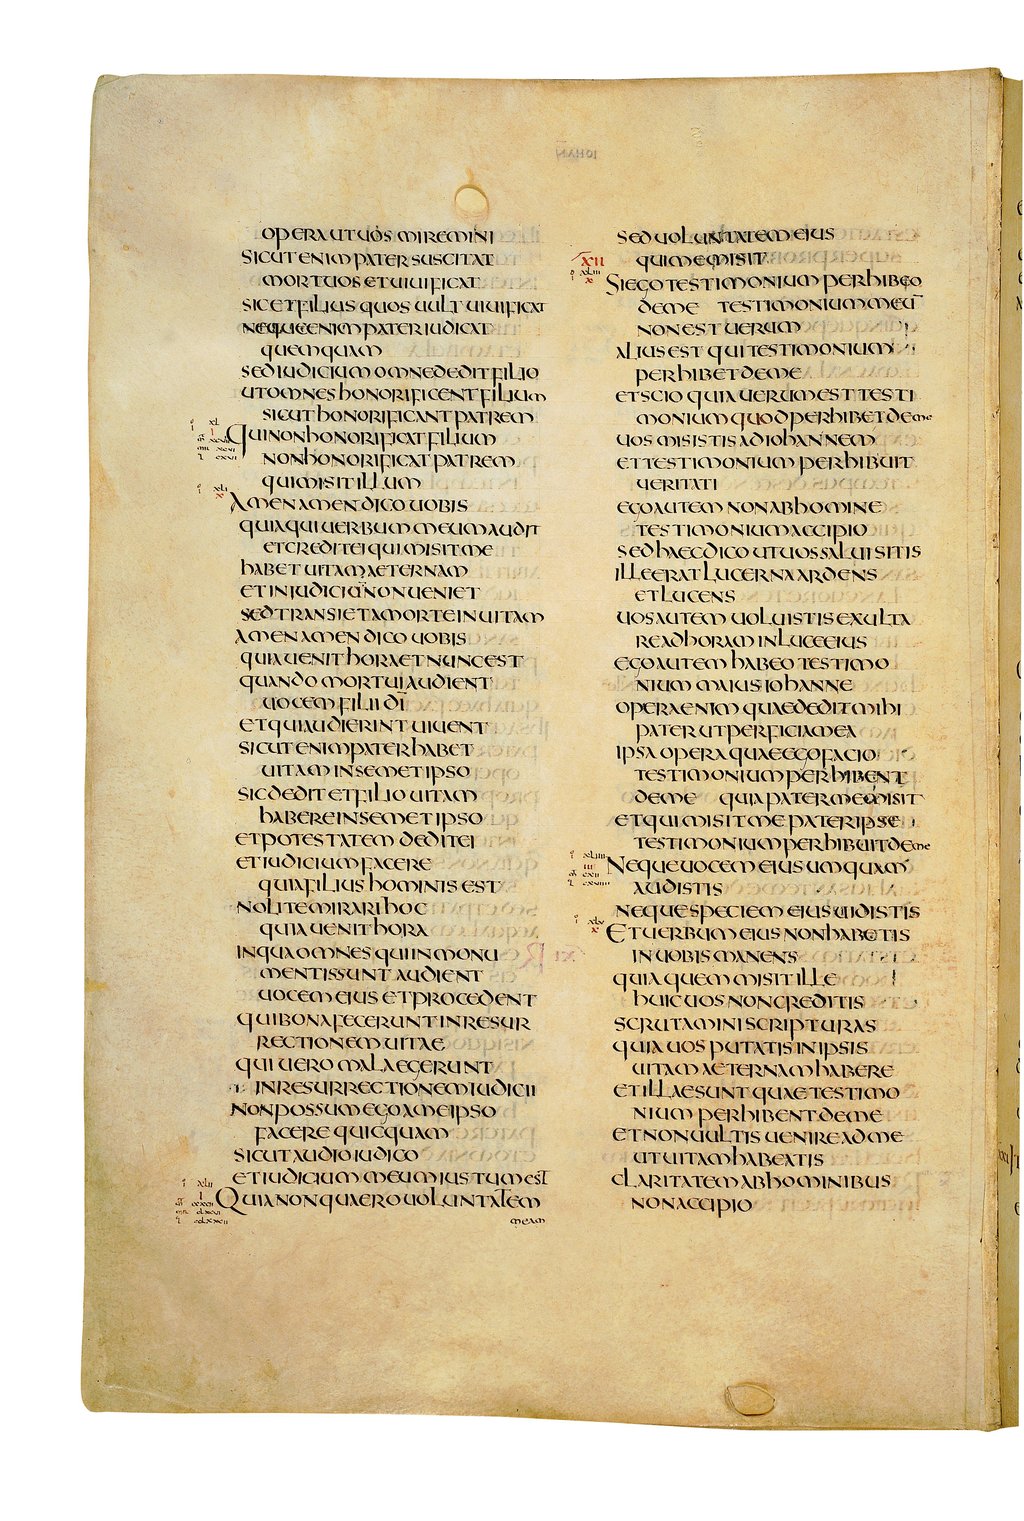 opera ut uos miremini
sicut enim pater suscitat
mortuos et uiuificat
sic et filius quos uult uiuificat
neque enim pater iudicat
quemquam
sed iudicium omne dedit filio
ut omnes honorificent filium
sicut honorificant patrem
Qui non honorificat filium
non honorificat patrem
qui misit illum
Amen amen dico uobis
quia qui uerbum meum audit
et credit ei qui misit me
habet uitam aeternam
et in iudiciū non ueniet
sed transiet a morte in uitam
Amen amen dico uobis
quia uenit hora et nunc est
quando mortui audient
uocem filii dī
et qui audierint uiuent
sicut enim pater habet
uitam in semetipso
sic dedit et filio uitam
habere in semetipso
et potestatem dedit ei
et iudicium facere
quia filius hominis est
nolite mirari hoc
quia uenit hora
in qua omnes qui in monu
mentis sunt audient
uocem eius et procedent
qui bona fecerunt in resur
rectionem uitae
qui uero mala egerunt
in resurrectionem iudicii
Non possum ego a me ipso
facere quicquam
sicut audio iudico
et iudicium meum iustum est
Quia non quaero uoluntatem
meam
sed uoluntatem eius
XII
qui me misit
Si ego testimonium perhibeo
de me testimonium meū
non est uerum
alius est qui testimonium
perhibet de me
et scio quia uerum est testi
monium quod perhibet de me
uos misistis ad iohannem
et testimonium perhibuit
ueritati
ego autem non ab homine
testimonium accipio
sed haec dico ut uos salui sitis
ille erat lucerna ardens
et lucens
uos autem uoluistis exulta
re ad horam in luce eius
ego autem habeo testimo
nium maius iohanne
opera enim quae dedit mihi
pater ut perficiam ea
ipsa opera quae ego facio
testimonium perhibent
de me quia pater me misit
et qui misit me pater ipse
testimonium perhibuit de me
Neque uocem eius umquam
audistis
neque speciem eius uidistis
Et uerbum eius non habetis
in uobis manens
quia quem misit ille
huic uos non creditis
scrutamini scripturas
quia uos putatis in ipsis
uitam aeternam habere
et illae sunt quae testimo
nium perhibent de me
et non uultis uenire ad me
ut uitam habeatis
claritatem ab hominibus
non accipio